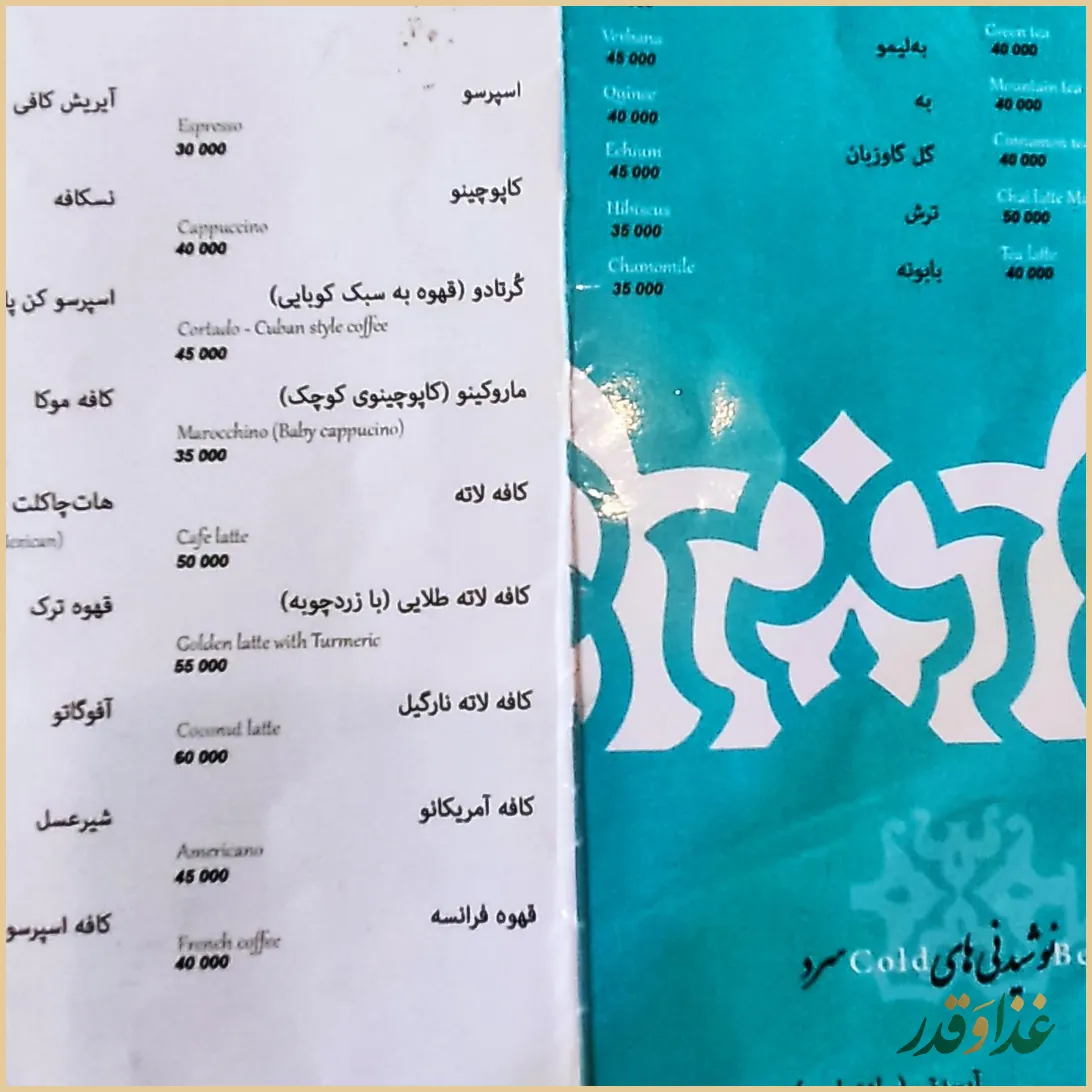 Verbena
به‌لیمو
45 000
Quince
به
40 000
Echium
گل گاوزبان
45 000
Hibiscus
ترش
35 000
Chamomile
بابونه
35 000
Green tea
40 000
Mountain tea
40 000
Cinnamon tea
40 000
Chai latte
50 000
Tea latte
40 000
نوشیدنی های سرد
Cold
غذا و قدر
اسپرسو
Espresso
30 000
کاپوچینو
Cappuccino
40 000
کُرتادو (قهوه به سبک کوبایی)
Cortado - Cuban style coffee
45 000
ماروکینو (کاپوچینوی کوچک)
Marocchino (Baby cappucino)
35 000
کافه لاته
Cafe latte
50 000
کافه لاته طلایی (با زردچوبه)
Golden latte with Turmeric
55 000
کافه لاته نارگیل
Coconut latte
60 000
کافه آمریکانو
Americano
45 000
قهوه فرانسه
French coffee
40 000
آیریش کافی
نسکافه
اسپرسو کن پا
کافه موکا
هات‌چاکلت
exican)
قهوه ترک
آفوگاتو
شیرعسل
کافه اسپرسو